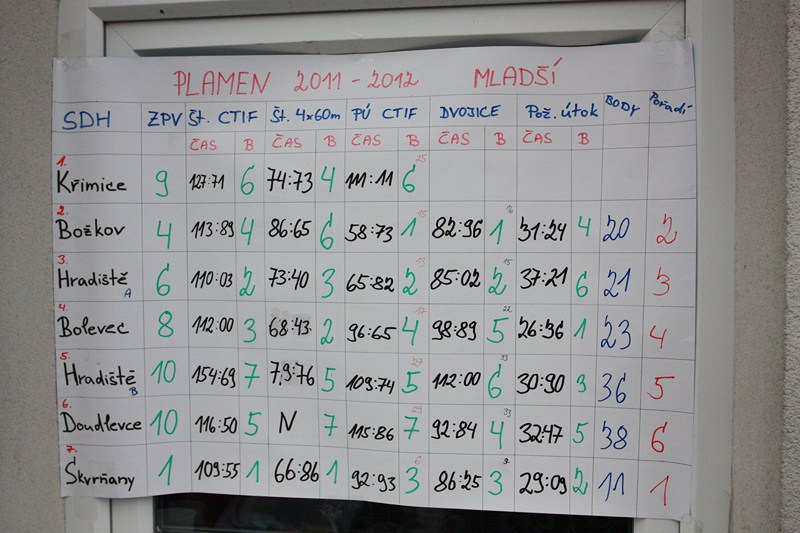 PLAMEN 2011-2012 MLADŠÍ
SDH ZPV Št. CTIF Št. 4x60m PÚ CTIF DVOJICE Pož. útok BODY Pořadí
ČAS B ČAS B ČAS B ČAS B ČAS B
1. Křimice 9 127:71 6 74:73 4 111:11 6 25
2. Božkov 4 113:89 4 86:65 6 58:73 1 15 82:96 1 16 31:24 4 20 2
3. Hradiště A 6 110:03 2 73:40 3 65:82 2 13 85:02 2 15 37:21 6 21 3
4. Bolevec 8 112:00 3 68:43 2 96:65 4 17 98:89 5 22 26:36 1 23 4
5. Hradiště B 10 154:69 7 79:76 5 109:74 5 27 112:00 6 33 30:90 3 36 5
6. Doudlevce 10 116:50 5 N 7 115:86 7 29 92:84 4 33 32:47 5 38 6
7. Skvrňany 1 109:55 1 66:86 1 92:93 3 6 86:25 3 29:09 2 11 1